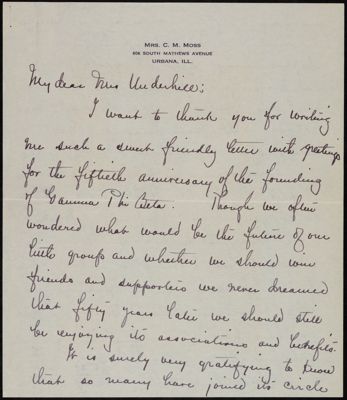 MRS. C. M. MOSS
606 SOUTH MATHEWS AVENUE
URBANA, ILL.
My dear Mrs Underhill;
I want to thank you for writing
me such a sweet friendly letter with greetings
for the fiftieth anniversary of the founding
of Gamma Phi Beta. Though we often
wondered what would be the future of our
little group and whether we should win
friends and supporters we never dreamed
that fifty years later we should still
be enjoying its associations and benefits.
It is surely very gratifying to know
that so many have joined its circle